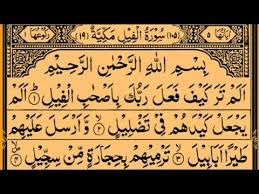 اٰیَاتُهَا ٥ (١٠٥) سُوْرَةُ الْفِيْلِ مَكِّيَّةٌ (١٩) رُكُوْعُهَا ١
بِسْمِ اللّٰهِ الرَّحْمٰنِ الرَّحِيْمِ
اَلَمْ تَرَ كَيْفَ فَعَلَ رَبُّكَ بِاَصْحٰبِ الْفِيْلِ ۝١ اَلَمْ
يَجْعَلْ كَيْدَهُمْ فِيْ تَضْلِيْلٍ ۝٢ وَّاَرْسَلَ عَلَيْهِمْ
طَيْرًا اَبَابِيْلَ ۝٣ تَرْمِيْهِمْ بِحِجَارَةٍ مِّنْ سِجِّيْلٍ ۝٤